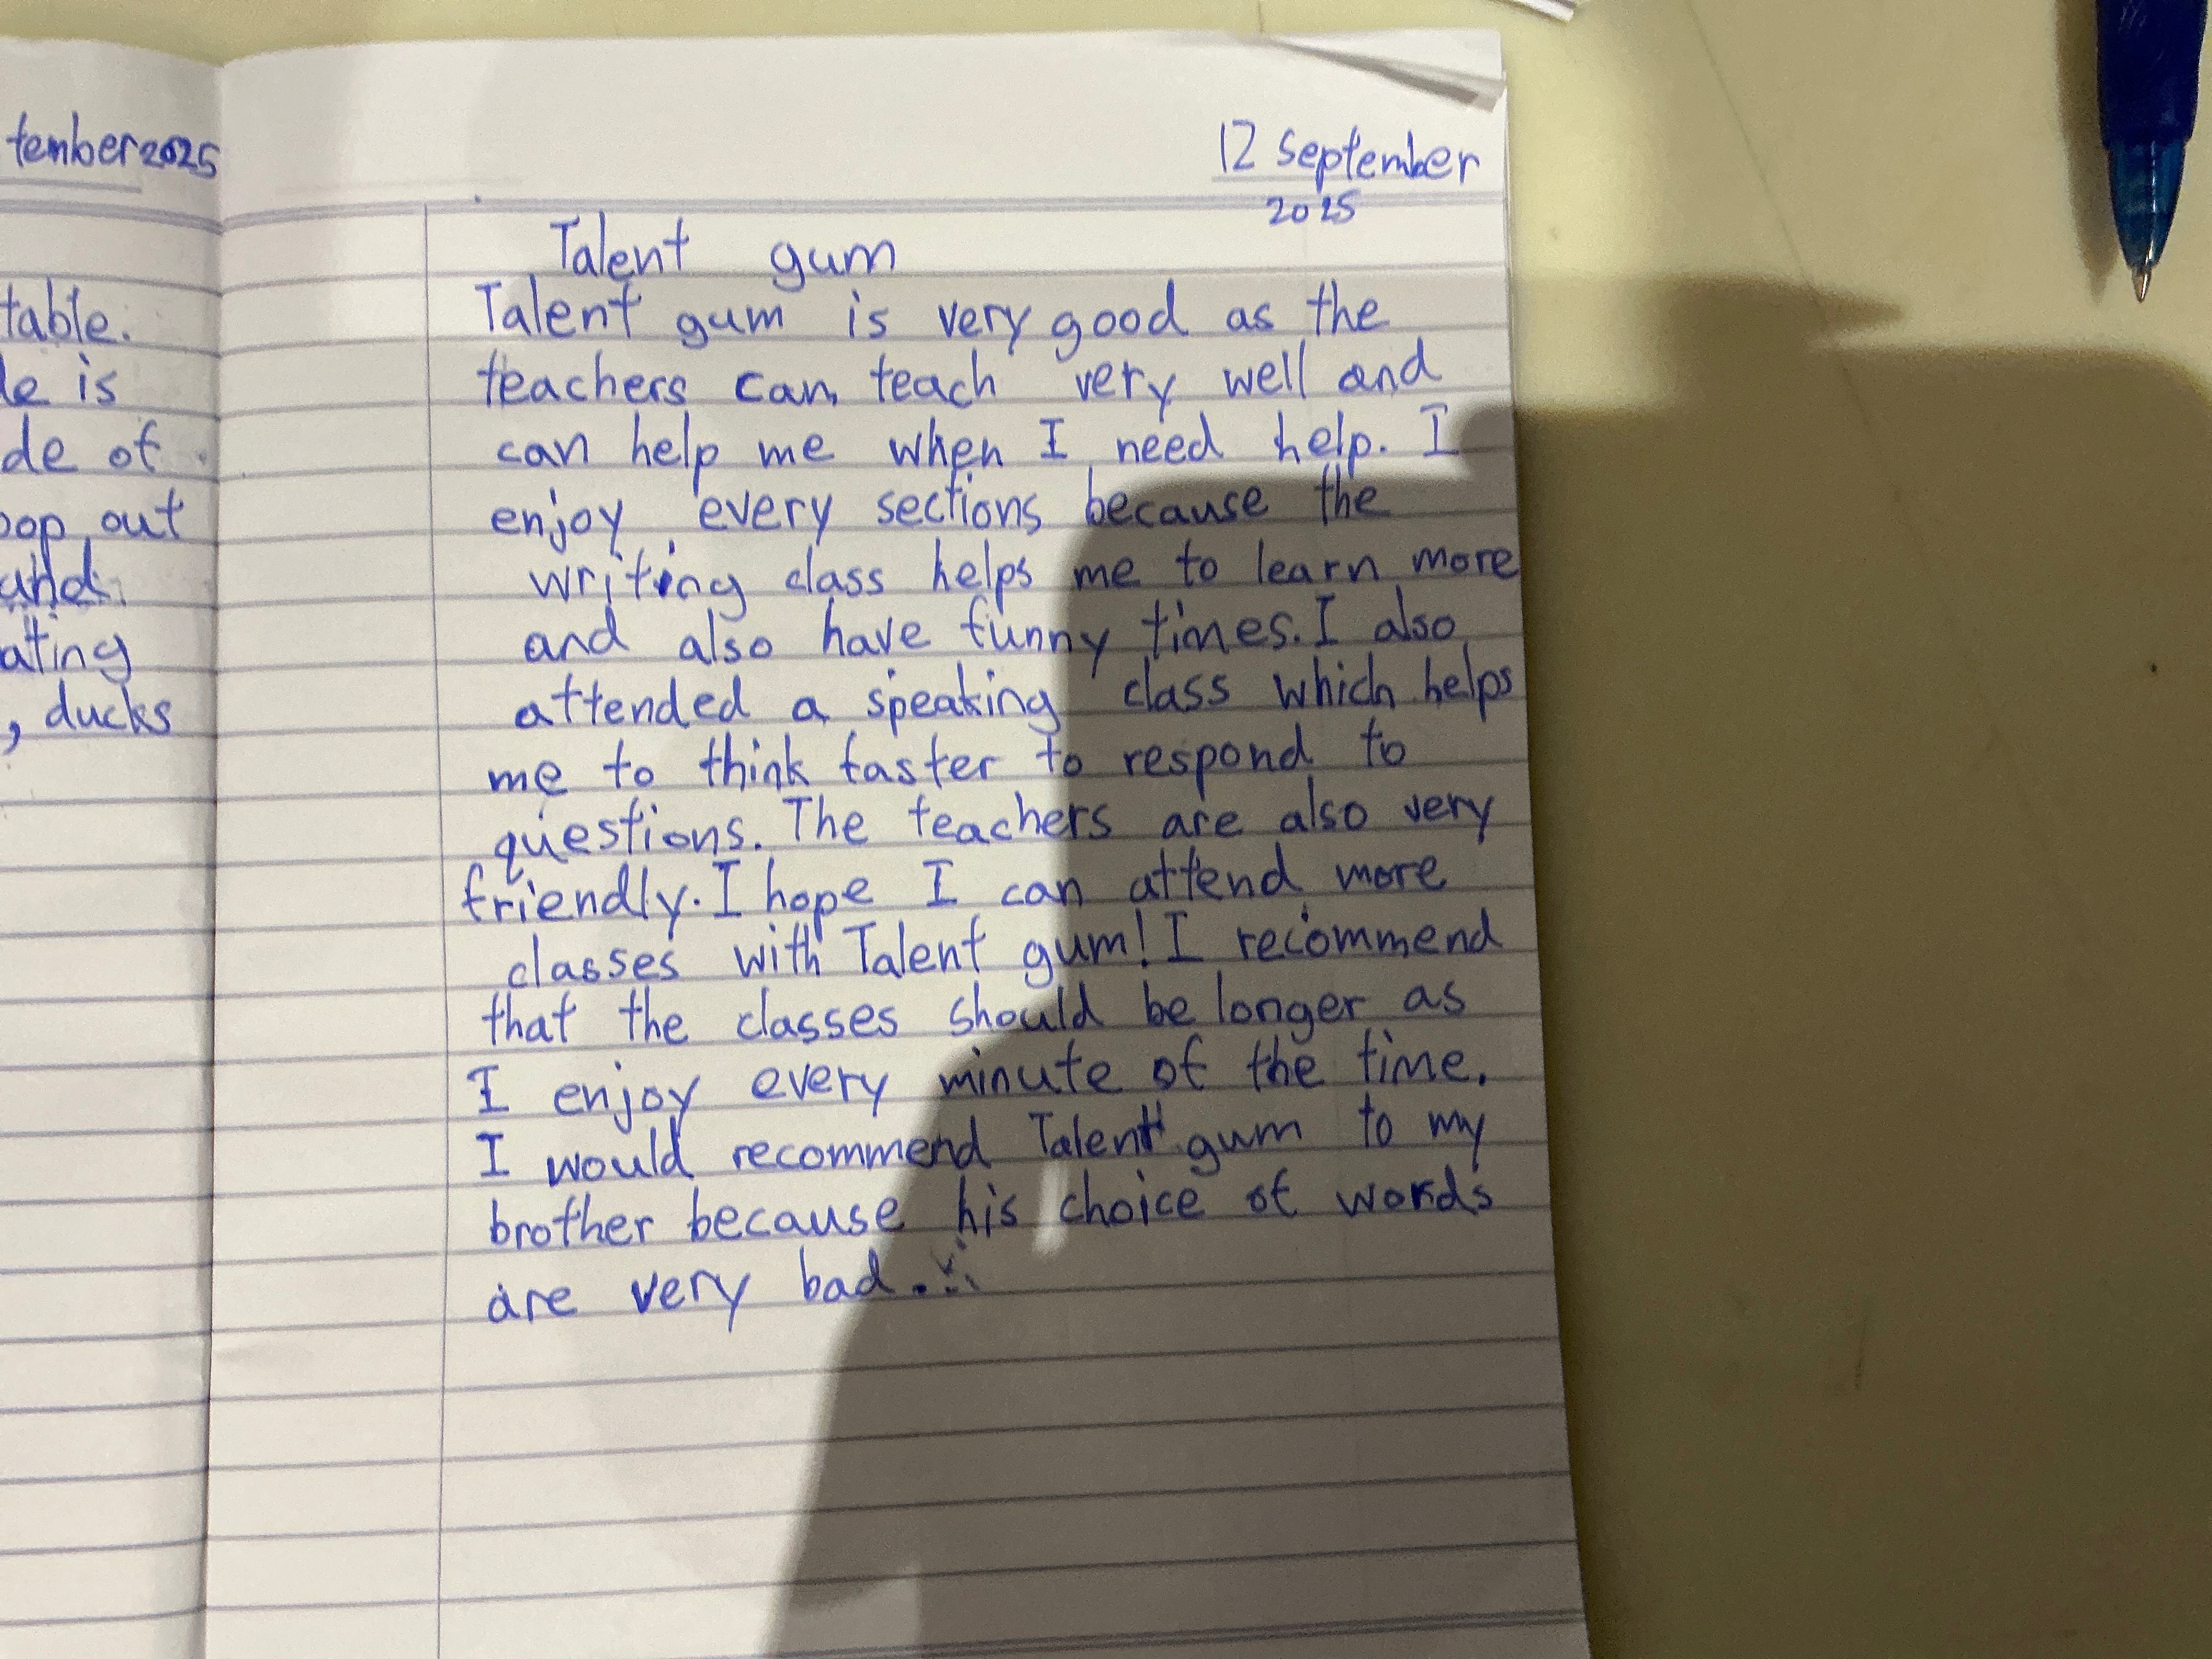 tember 2025
table.
le is
de of
pop out
and
ating
, ducks
12 September
2025
Talent gum
Talent gum is very good as the
teachers can teach very well and
can help me when I need help. I
enjoy every sections because the
writing class helps me to learn more
and also have funny times. I also
attended a speaking class which helps
me to think faster to respond to
questions. The teachers are also very
friendly. I hope I can attend more
classes with Talent gum! I recommend
that the classes should be longer as
I enjoy every minute of the time.
I would recommend Talent gum to my
brother because his choice of words
are very bad.